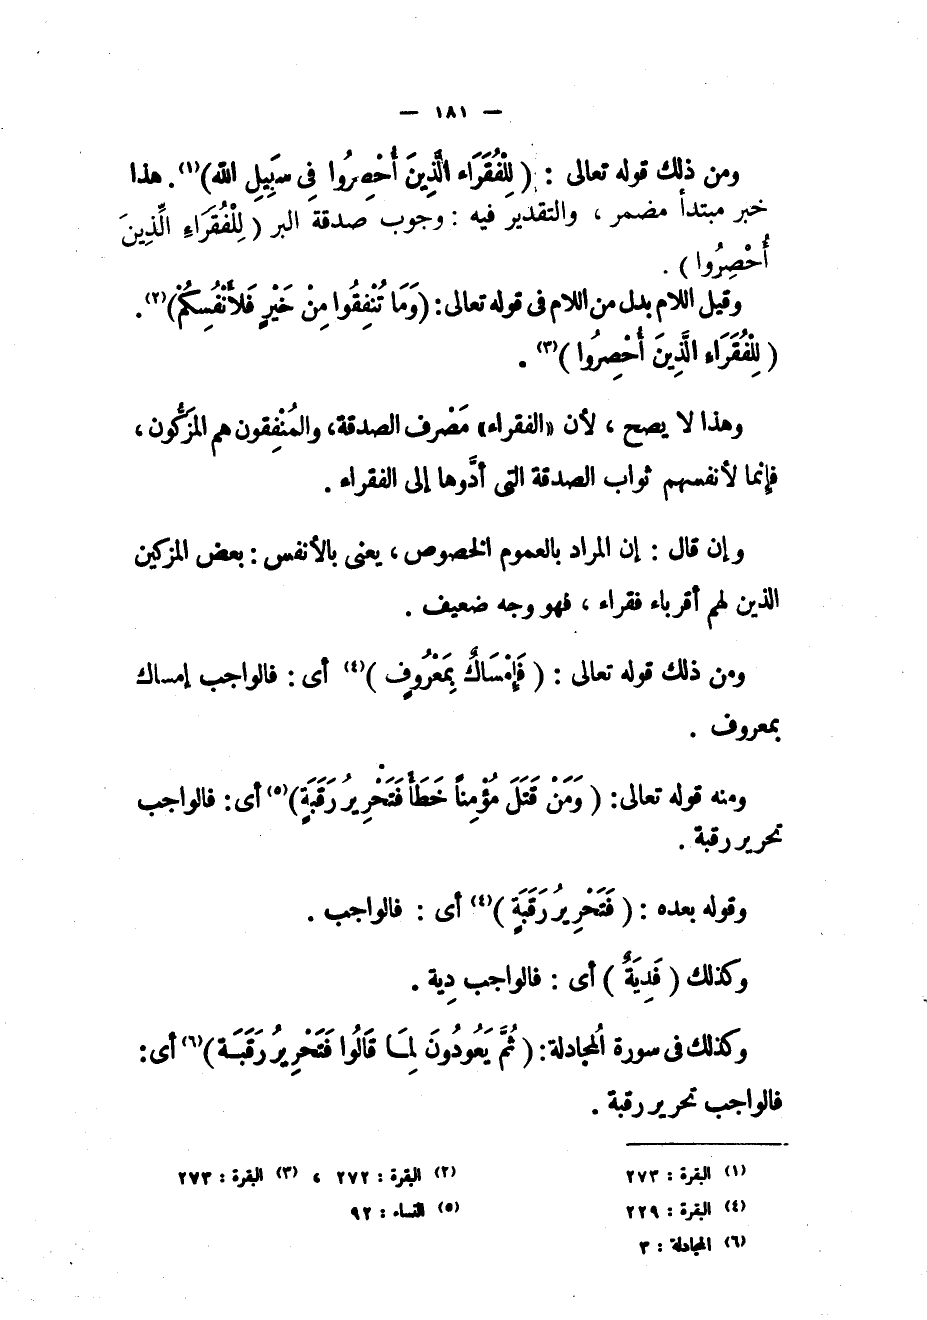 — ١٨١ —
ومن ذلك قوله تعالى : ( لِلْفُقَرَاء الَّذِينَ أُحْصِرُوا فِى سَبِيلِ الله)(١). هذا
خبر مبتدأ مضمر ، والتقدير فيه : وجوب صدقة البر ( لِلْفُقَرَاءِ الَّذِينَ
أُحْصِرُوا ) .
وقيل اللام بدل من اللام فى قوله تعالى: (وَمَا تُنْفِقُوا مِنْ خَيْرٍ فَلأَنْفُسِكُمْ)(٢).
( لِلْفُقَرَاءِ الَّذِينَ أُحْصِرُوا )(٣) .
وهذا لا يصح ، لأن «الفقراء» مَصْرف الصدقة، والمُنْفِقون هم المزَكُّون ،
فإنما لأنفسهم ثواب الصدقة التى أدَّوها إلى الفقراء .
وإن قال : إن المراد بالعموم الخصوص ، يعنى بالأنفس : بعض المزكين
الذين لهم أقرباء فقراء ، فهو وجه ضعيف .
ومن ذلك قوله تعالى : ( فَإِمْسَاكٌ بِمَعْرُوفٍ )(٤) أى : فالواجب إمساك
بمعروف .
ومنه قوله تعالى: ( وَمَنْ قَتَلَ مُؤْمِناً خَطَأً فَتَحْرِيرُ رَقَبَةٍ)(٥) أى: فالواجب
تحرير رقبة .
وقوله بعده : ( فَتَحْرِيرُ رَقَبَةٍ )(٤) أى : فالواجب .
وكذلك ( فَدِيَةٌ ) أى : فالواجب دِية .
وكذلك فى سورة المُجادلة: ( ثُمَّ يَعُودُونَ لِمَا قَالُوا فَتَحْرِيرُ رَقَبَة)(٦) أى:
فالواجب تحرير رقبة .
(١) البقرة : ٢٧٣ (٢) البقرة : ٢٧٢ ، (٣) البقرة : ٢٧٣
(٤) البقرة : ٢٢٩ (٥) النساء : ٩٢
(٦) المجادلة : ٣